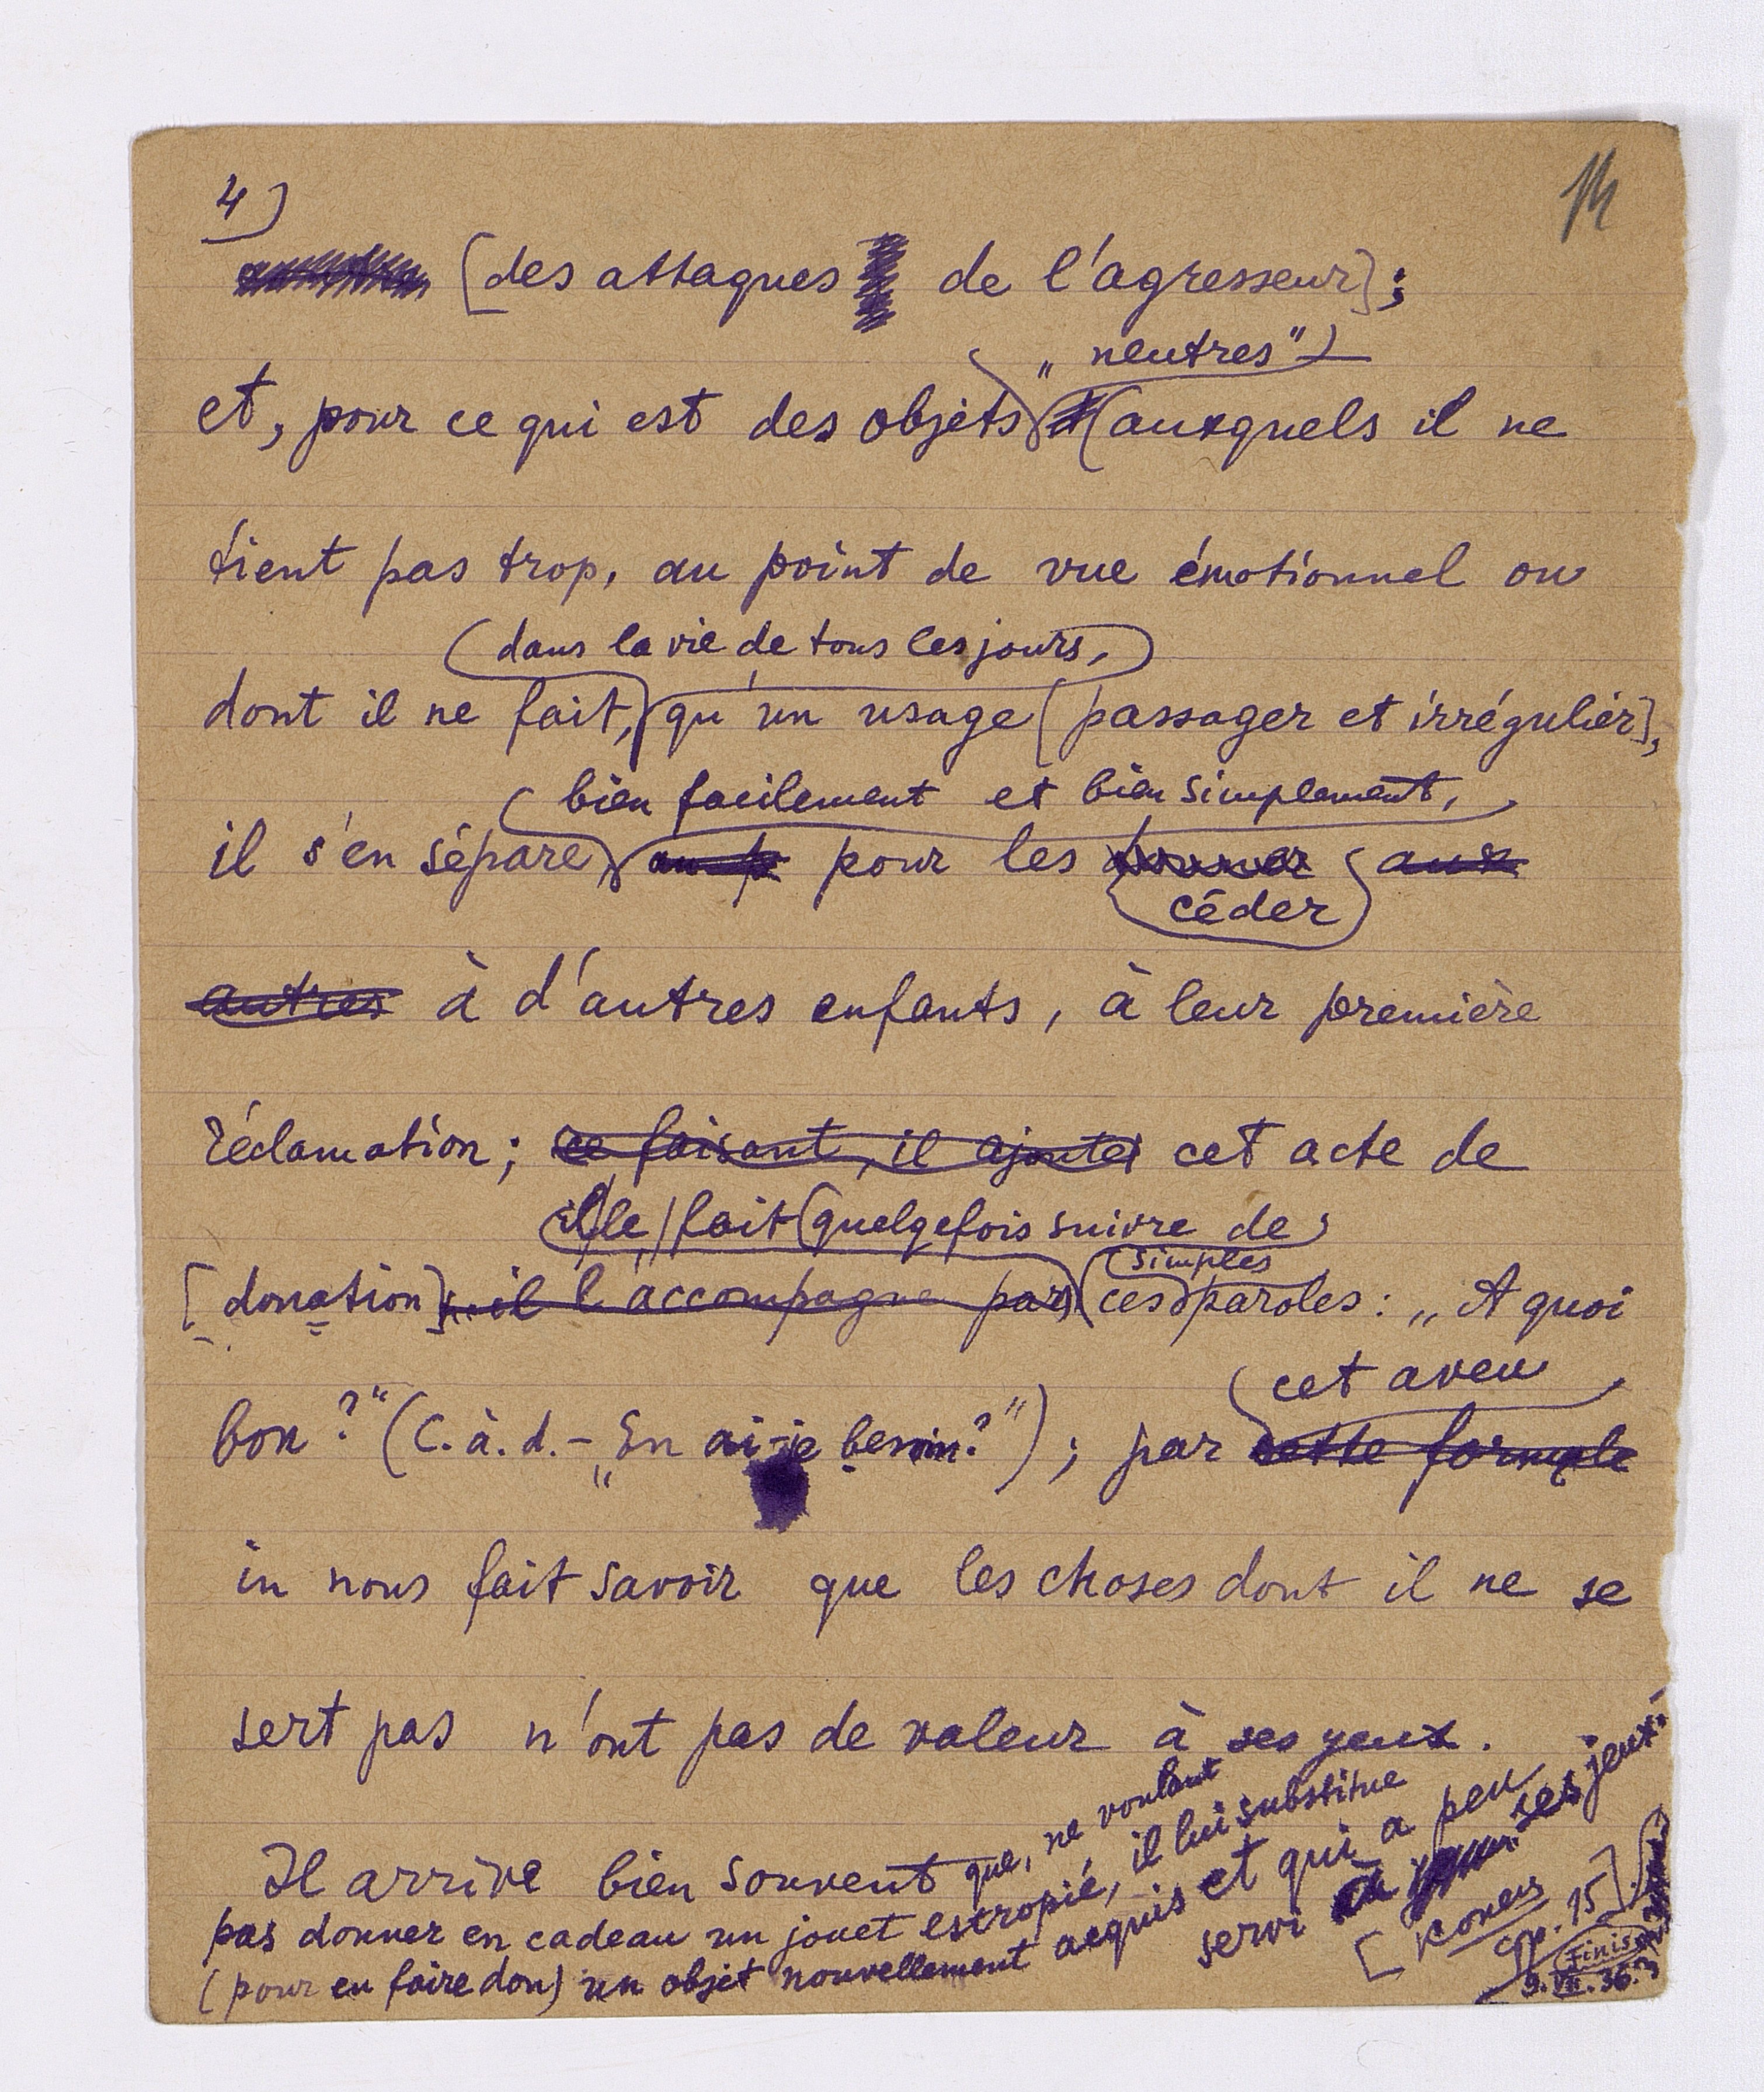 4)
14
[des attaques de l'agresseur];
„neutres")
et, pour ce qui est des objets (auxquels il ne
tient pas trop, au point de vue émotionnel ou
(dans la vie de tous les jours,)
dont il ne fait, qu'un usage [passager et irrégulier],
(bien facilement et bien simplement,
il s'en sépare, pour les donner aux
céder
autres à d'autres enfants, à leur première
réclamation; ce faisant, il ajoute cet acte de
il le fait (quelqefois suivre de
simples
[donation], il l'accompagne par (ces paroles: „A quoi
cet aveu
bon?" (C. à. d. – „En ai-je besoin?"); par cette formule
in nous fait savoir que les choses dont il ne se
sert pas n'ont pas de valeur à ses yeux.
Il arrive bien souvent que, ne voulant
pas donner en cadeau un jouet estropié, il lui substitue
(pour en faire don) un objet nouvellement acquis et qui a peu
servi à ses jeux.
[конец
стр. 15]
Finis
9.VII.36.